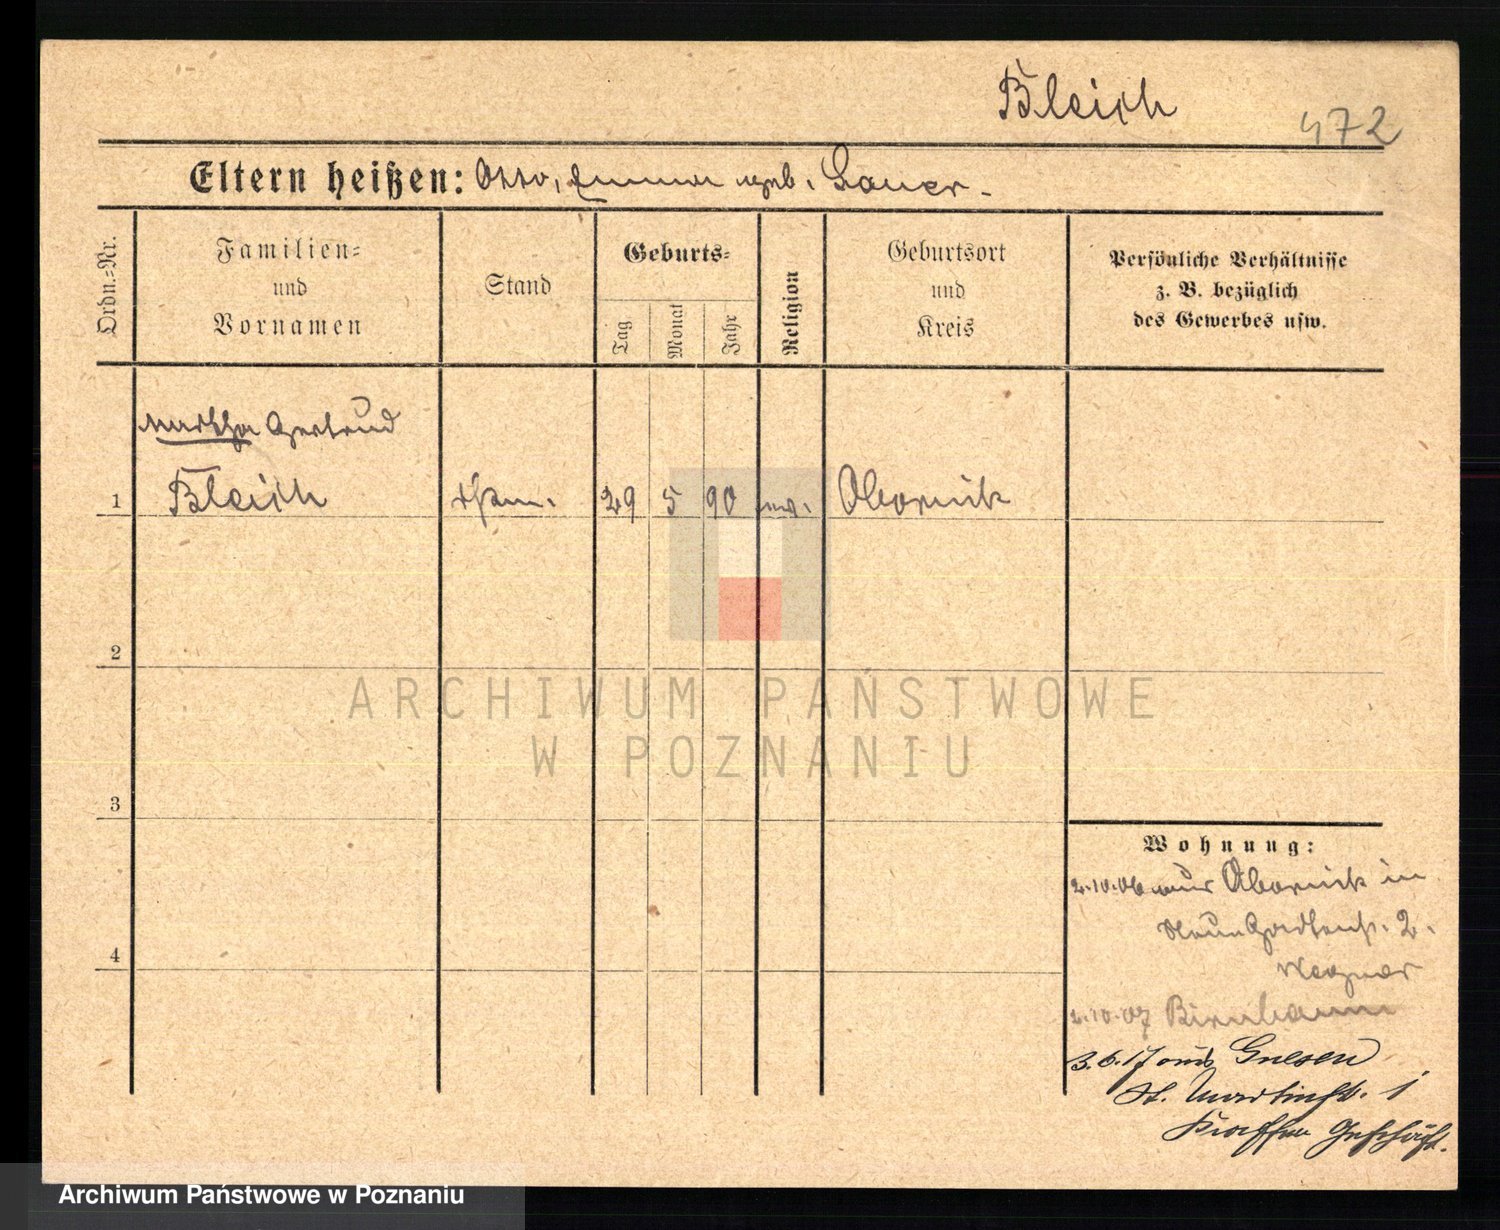 Bleich
472
Eltern heißen: Otto, Emma geb. Lauer.
Ordn.-Nr.
Familien- und Vornamen
Stand
Geburts-
Tag
Monat
Jahr
Religion
Geburtsort und Kreis
Persönliche Verhältnisse
z. B. bezüglich
des Gewerbes usw.
Martha Gertrud
1 Bleich 29 5 90 ev. Obornik
2
3
4
Wohnung:
2.10.06 aus Obornik in
Neue Gartenstr. 2.
Wegner
2.10.07 Birnbaum
3.6.17 aus Gnesen
St. Martinstr. 1
Geschäft.
ARCHIWUM PAŃSTWOWE
W POZNANIU
Archiwum Państwowe w Poznaniu